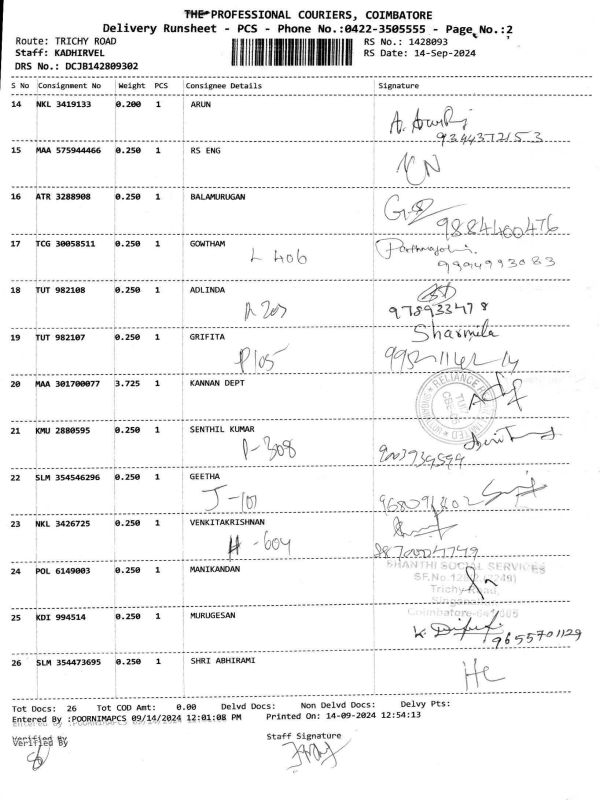 THE PROFESSIONAL COURIERS, COIMBATORE
Delivery Runsheet - PCS - Phone No.:0422-3505555 - Page No.:2
Route: TRICHY ROAD RS No.: 1428093
Staff: KADHIRVEL RS Date: 14-Sep-2024
DRS No.: DCJB142809302
S No Consignment No Weight PCS Consignee Details Signature
14 NKL 3419133 0.200 1 ARUN
9344372153
15 MAA 575944466 0.250 1 RS ENG
16 ATR 3288908 0.250 1 BALAMURUGAN
9884400476
17 TCG 30058511 0.250 1 GOWTHAM
L 406 9994993083
18 TUT 982108 0.250 1 ADLINDA
978933478
19 TUT 982107 0.250 1 GRIFITA Sharmila
P105
20 MAA 301700077 3.725 1 KANNAN DEPT
RELIANCE
21 KMU 2880595 0.250 1 SENTHIL KUMAR
22 SLM 354546296 0.250 1 GEETHA
J-101
23 NKL 3426725 0.250 1 VENKITAKRISHNAN
H-604
24 POL 6149003 0.250 1 MANIKANDAN SHANTHI SOCIAL SERVICES
Trichy Road,
25 KDI 994514 0.250 1 MURUGESAN
9655701129
26 SLM 354473695 0.250 1 SHRI ABHIRAMI
Tot Docs: 26 Tot COD Amt: 0.00 Delvd Docs: Non Delvd Docs: Delvy Pts:
Entered By :POORNIMAPCS 09/14/2024 12:01:08 PM Printed On: 14-09-2024 12:54:13
Verified By Staff Signature